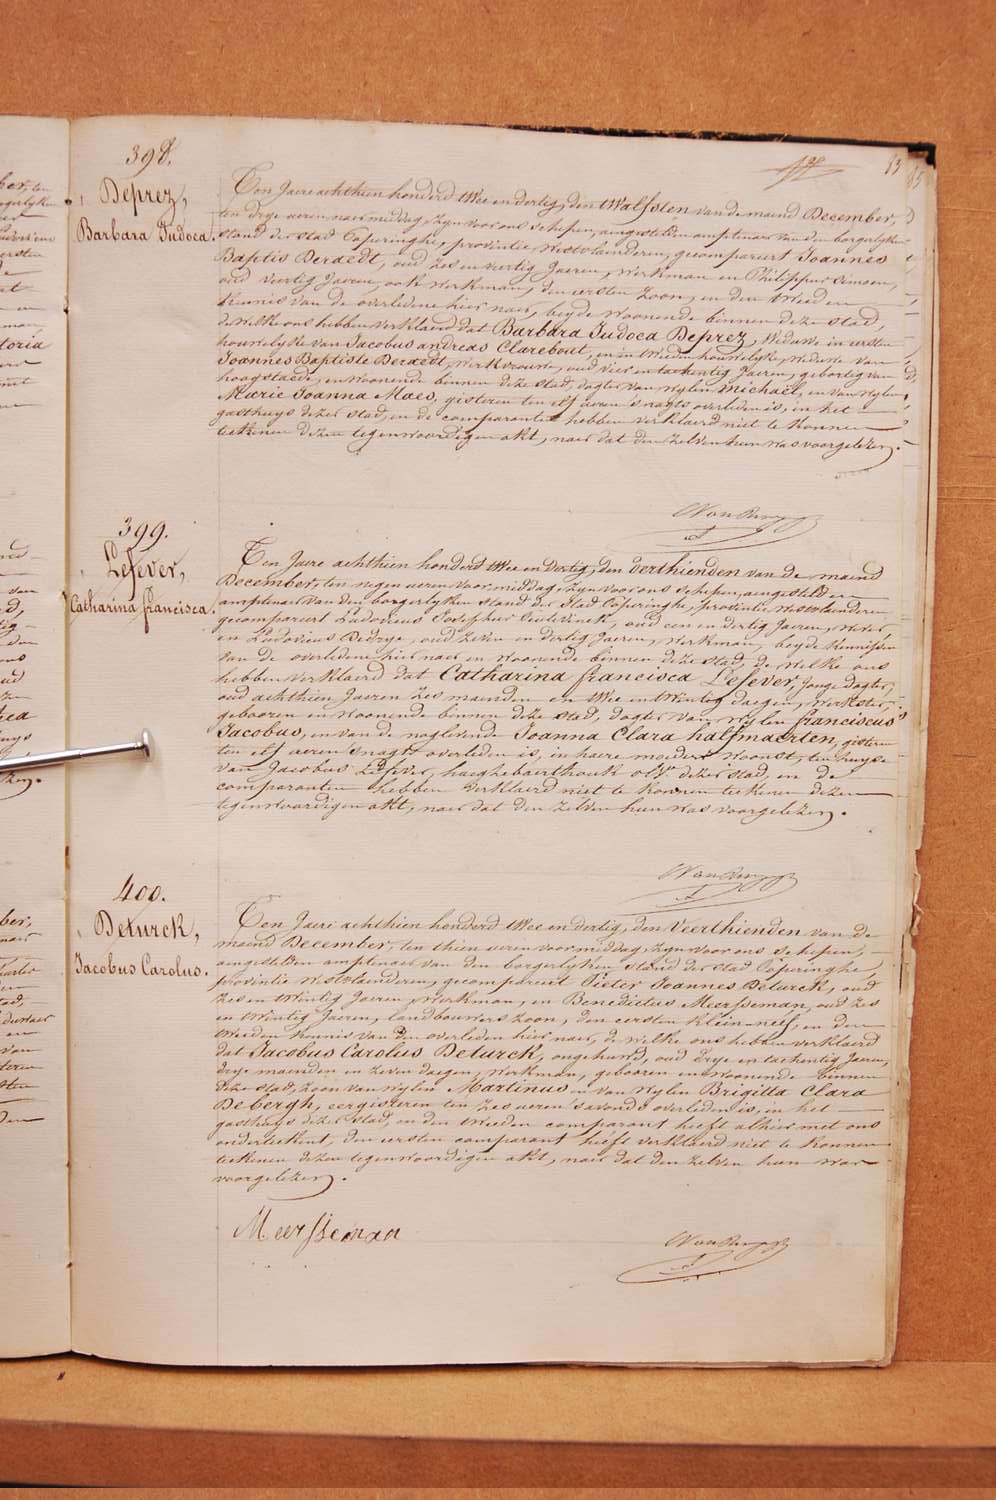 83
398.
Deprez,
Barbara Judoca.
Ten Jaere achthien honderd twee en dertig, den twalfsten van de maend December,
ten drye ueren naermiddag, zyn voor ons schepen, aengestelden amptenaer van den borgerlyken
stand der stad Poperinghe, provintie westvlaenderen, gecompareert Joannes
Baptis Deraedt, oud zes en veertig Jaeren, werkman en Philippus Simoen,
oud veertig Jaeren, ook werkman, den eersten zoon, en den tweeden
kennis van de overledene hier naer, beyde woonende binnen deze stad,
de welke ons hebben verklaerd dat Barbara Judoca Deprez, weduwe in eersten
houwelyke van Jacobus andreas Clarebout, en in tweeden houwelyke, weduwe van
Joannes Baptiste Deraedt, werkvrouw, oud vier en tachentig Jaeren, gebortig van
hoogstaede, en woonende binnen deze stad, dogter van wylen Michaël, en van wylen
Marie Joanna Maes, gisteren ten elf ueren 's nagts overleden is, in het
gasthuys dezer stad, en de comparanten hebben verklaerd niet te konnen
teekenen dezen tegenwoordigen akt, naer dat den zelven hun was voorgelezen.
399.
Lefever,
Catharina francisca.
Ten Jaere achthien honderd twee en dertig, den derthienden van de maend
December, ten negen ueren voormiddag, zyn voor ons schepen, aengestelden
amptenaer van den borgerlyken stand der stad Poperinghe, provintie westvlaenderen,
gecompareert Ludovicus Josephus, oud een en dertig Jaeren, wever
en Ludovicus Dedrye, oud zeven en dertig Jaeren, werkman, beyde kennissen
van de overledene hier naer en woonende binnen deze stad, de welke ons
hebben verklaerd dat Catharina francisca Lefever, Jonge dogter,
oud achthien Jaeren zes maenden en twee en twintig daegen, werkster,
gebooren en woonende binnen deze stad, dogter van wylen franciscus
Jacobus, en van de nogleevende Joanna Clara halfmaerten, gisteren
ten elf ueren 's nagts overleden is, in haere moeders woonst, ten huyse
van Jacobus Lefever, haeghebaerthoek dezer stad, en de
comparanten hebben verklaerd niet te konnen teekenen dezen
tegenwoordigen akt, naer dat den zelven hun was voorgelezen.
400.
Deturck,
Jacobus Carolus.
Ten Jaere achthien honderd twee en dertig, den veerthienden van de
maend December, ten thien ueren voormiddag, zyn voor ons schepen,
aengestelden amptenaer van den borgerlyken stand der stad Poperinghe,
provintie westvlaenderen, gecompareert Pieter Joannes Deturck, oud
zes en twintig Jaeren, werkman, en Benedictus Meersseman, oud zes
en twintig Jaeren, landbouwers zoon, den eersten klein-neef, en den
tweeden kennis van den overleden hier naer, de welke ons hebben verklaerd
dat Jacobus Carolus Deturck, ongehuwd, oud drye en tachentig Jaeren,
drye maenden en zeven daegen, werkman, gebooren en woonende binnen
deze stad, zoon van wylen Martinus en van wylen Brigitta Clara
Debergh, eergisteren ten zes ueren 's avonds overleden is, in het
gasthuys dezer stad, en den tweeden comparant heeft alhier met ons
onderteekent, den eersten comparant heeft verklaerd niet te konnen
teekenen dezen tegenwoordigen akt, naer dat den zelven hun was
voorgelezen.
Meersseman